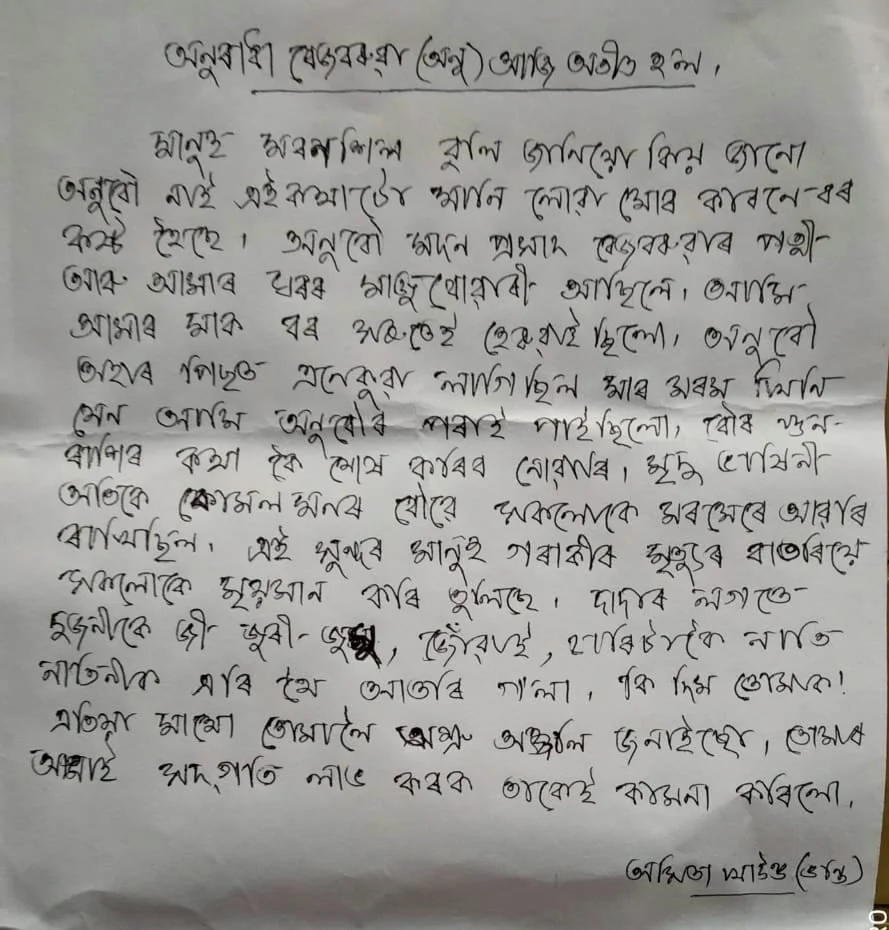 অনুৰাধা বেজবৰুৱা (অনু) আজি অতীত হ'ল।
মানুহ মৰনশিল বুলি জানিয়ো কিয় জানো
অনুবৌ নাই এই কথাটো মানি লোৱা মোৰ কাৰনে বৰ
কষ্ট হৈছে। অনুবৌ মদন প্ৰসাদ বেজবৰুৱাৰ পত্নী
আৰু আমাৰ ঘৰৰ মাজু বোৱাৰী আছিলে। আমি
আমাৰ মাক বৰ সৰুতেই হেৰুৱাই ছিলো। অনুবৌ
অহাৰ পিছত এনেকুৱা লাগিছিল মাৰ মৰম খিনি
যেন আমি অনুবৌৰ পৰাই পাইছিলো। বৌৰ গুন-
ৰাশিৰ কথা কৈ শেষ কৰিব নোৱাৰি। মৃদু ভাষিনী
অতিকে কোমল মনৰ বৌৱে সকলোকে মৰমেৰে আৱৰি
ৰাখিছিল। এই সুন্দৰ মানুহ গৰাকীৰ মৃত্যুৰ বাতৰিয়ে
সকলোকে মৃয়মান কৰি তুলিছে। দাদাৰ লগতে
দুজনীকৈ জী জুৰী-জুমু, জোঁৱাই, চাৰিটাকৈ নাতি
নাতিনীক এৰি থৈ আতৰি গ'লা। কি দিম তোমাক!
এতিয়া মাথো তোমালৈ অশ্ৰু অঞ্জলি জনাইছো। তোমাৰ
আত্মাই সদ্‌গতি লাভ কৰক তাকেই কামনা কৰিলো।
অমিতা খাউণ্ড (ভন্তি)